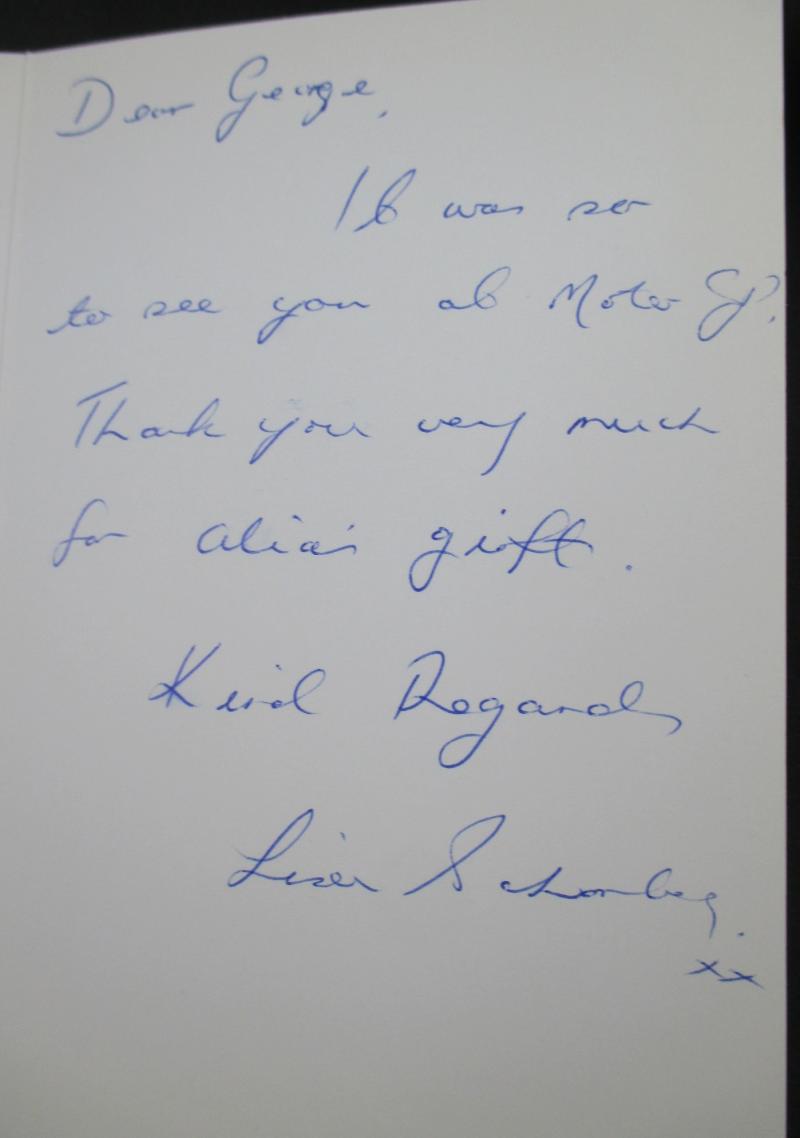 Dear George,
It was so
to see you at Moto GP.
Thank you very much
for alia's gift.
Kind Regards
Lisa Schomberg.
xx